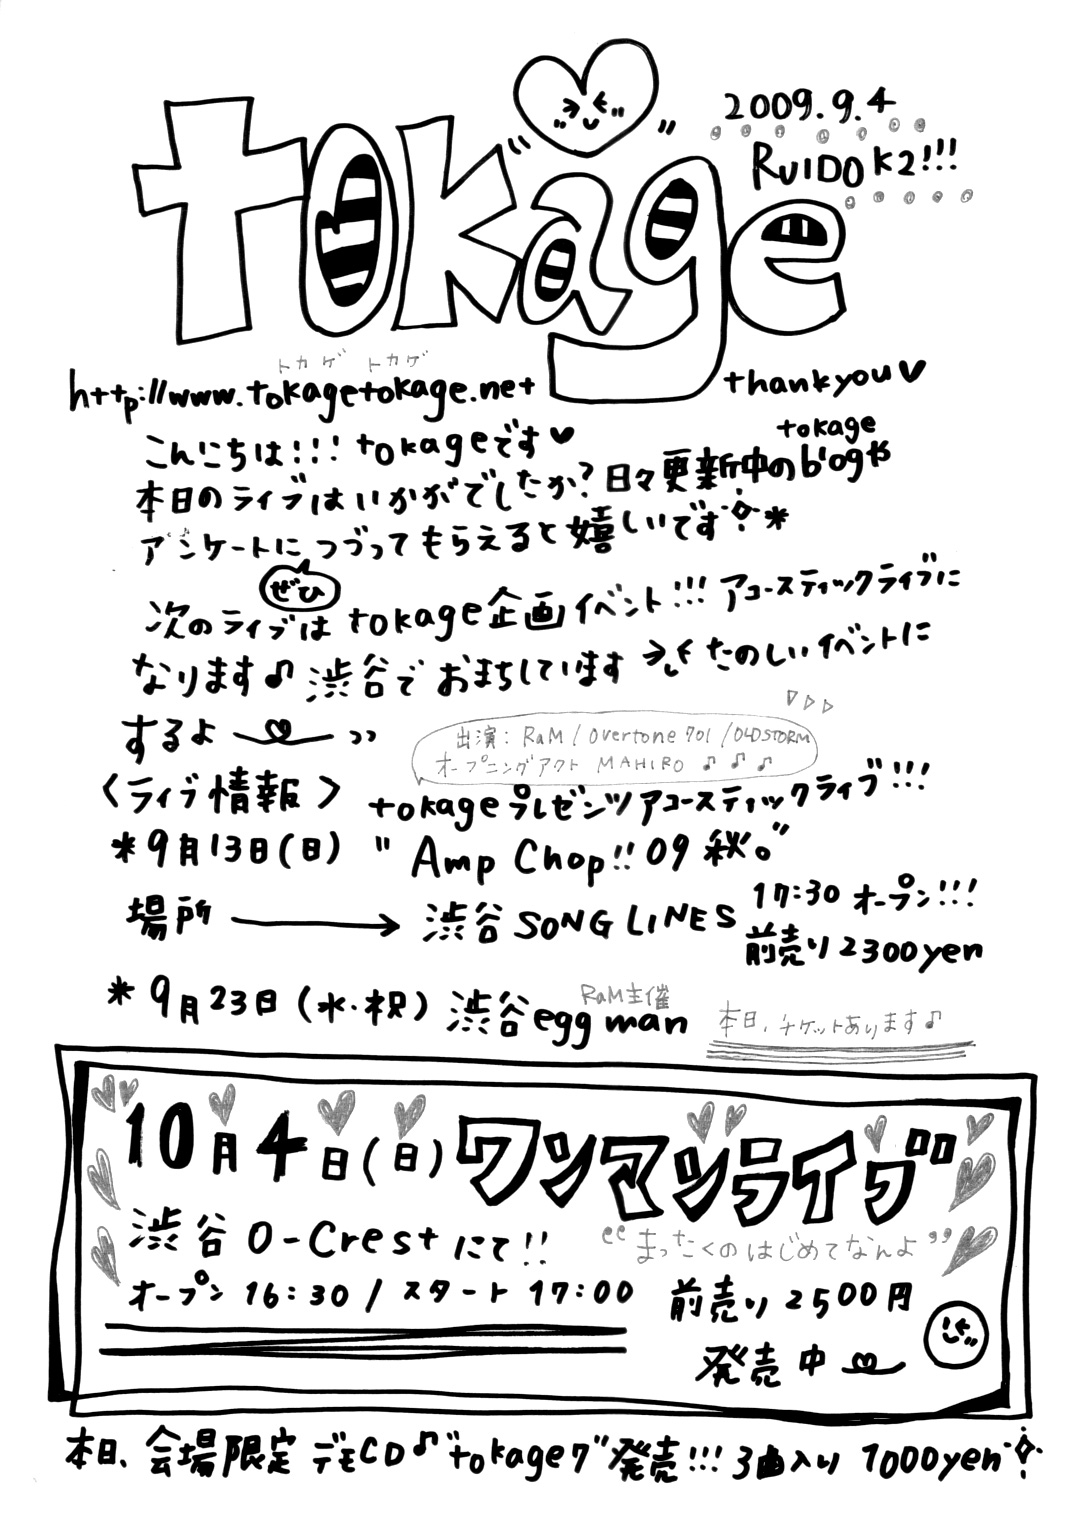 tokage
2009.9.4
RUIDO K2!!!
トカゲ トカゲ
http://www.tokagetokage.net
thankyou♥
こんにちは!!! tokageです♥
tokage
本日のライブはいかがでしたか?日々更新中のblogや
アンケートにつづってもらえると嬉しいです*
ぜひ
次のライブは tokage企画イベント!!! アコースティックライブに
なります♪ 渋谷で おまちしています たのしいイベントに
するよ
出演: RaM / Overtone 701 / OLDSTORM
オープニングアクト MAHIRO ♪ ♪ ♪
〈ライブ情報〉 tokageプレゼンツアコースティックライブ!!!
*9月13日(日) "Amp Chop!! 09 秋。"
場所 → 渋谷 SONG LINES
17:30 オープン!!!
前売り 2300yen
RaM主催
*9月23日(水・祝) 渋谷egg man
本日、チケットあります♪
10月4日(日) ワンマンライブ
渋谷 O-Crest にて!!
"まったくのはじめてなんよ"
オープン 16:30 / スタート 17:00
前売り 2500円
発売中
本日、会場限定 デモCD♪ "tokage7" 発売!!! 3曲入り 1000yen